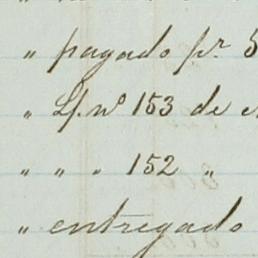 " pagado pr. 5
" Lp. nº 153 de
" " " 152 "
" entregado